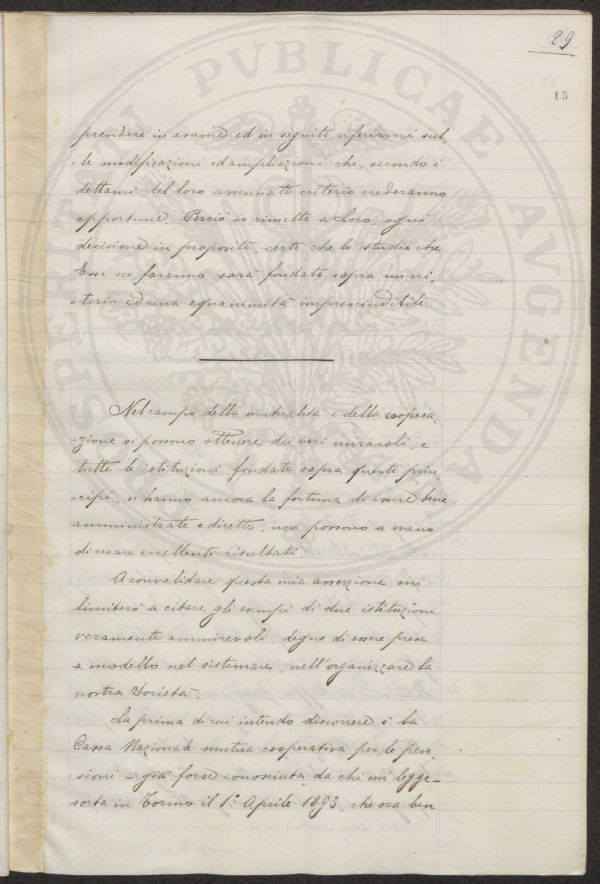 29
15
prendere in esame ed in seguito riferirmi sul-
=le modificazioni ed ampliazioni che, secondo i
dettami del loro assennato criterio crederanno
opportune. Perciò io rimetto a Loro, ogni
decisione in proposito, certo che lo studio che
Essi ne faranno sarà fondato sopra un cri-
=terio ed una equanimità imprescindibili.
Nel campo della mutualità e della coopera-
=zione si possono ottenere dei veri miracoli, e
tutte le istituzioni fondate sopra questi prin-
=cipi, se hanno ancora la fortuna di essere bene
amministrate e dirette, non possono a meno
di recare eccellenti risultati.
A convalidare questa mia asserzione mi
limiterò a citare gli esempi di due istituzioni
veramente ammirevoli, degne di essere prese
a modello nel sistemare, nell'organizzare la
nostra Società.
La prima di cui intendo discorrere è la
Cassa Nazionale mutua cooperativa per le pen-
=sioni - già forse conosciuta da chi mi legge -
sorta in Torino il 1° Aprile 1893, che ora ben
PROSPERITATI PVBLICAE AVGENDAE